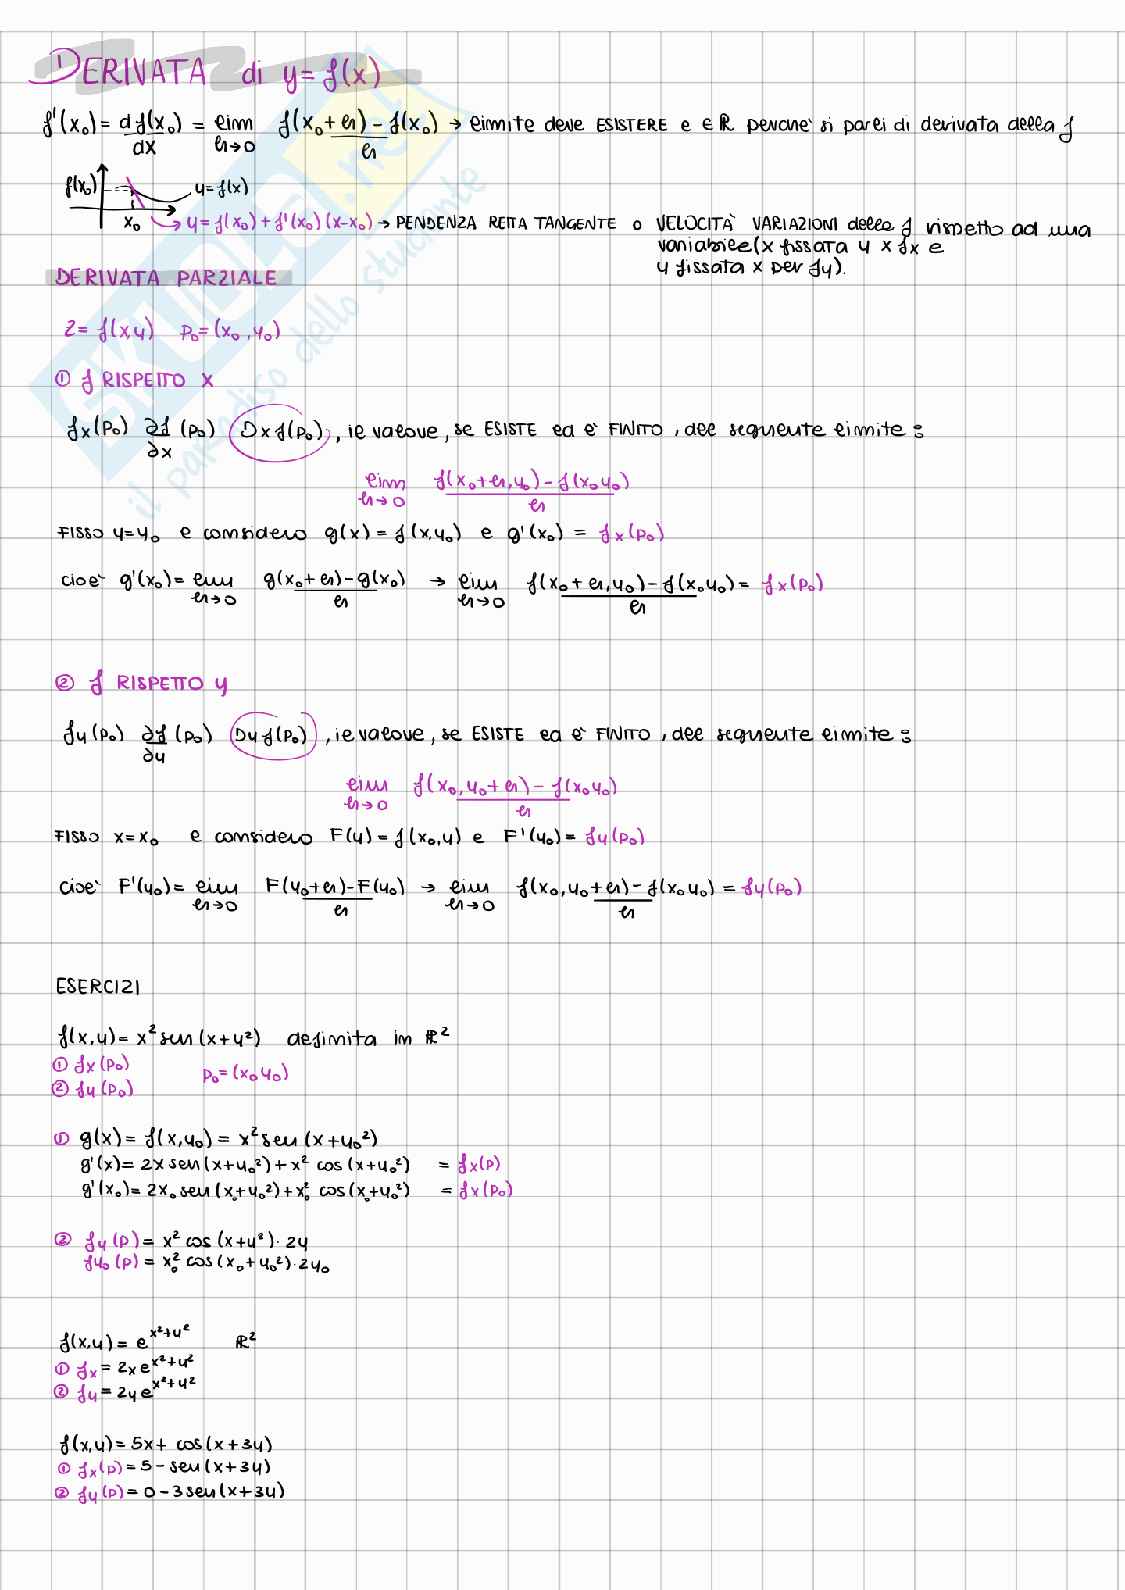 DERIVATA di y = f(x)
f'(x₀) = df(x₀)/dx = lim h→0 f(x₀+h) - f(x₀)/h → limite deve ESISTERE e ∈ ℝ perché si parli di derivata della f
f(x₀) y = f(x)
x₀ → y = f(x₀) + f'(x₀)(x-x₀) → PENDENZA RETTA TANGENTE o VELOCITÀ VARIAZIONI della f rispetto ad una
variabile (x fissata y x fx e
y fissata x per fy).
DERIVATA PARZIALE
z = f(x,y) p₀ = (x₀, y₀)
① f RISPETTO x
fx(p₀) ∂f/∂x (p₀) Dx f(p₀), il valore, se ESISTE ed è FINITO, del seguente limite:
lim h→0 f(x₀+h, y₀) - f(x₀y₀)/h
FISSO y=y₀ e considero g(x) = f(x,y₀) e g'(x₀) = fx(p₀)
cioè g'(x₀) = lim h→0 g(x₀+h) - g(x₀)/h → lim h→0 f(x₀+h, y₀) - f(x₀y₀)/h = fx(p₀)
② f RISPETTO y
fy(p₀) ∂f/∂y (p₀) Dy f(p₀), il valore, se ESISTE ed è FINITO, del seguente limite:
lim h→0 f(x₀, y₀+h) - f(x₀y₀)/h
FISSO x=x₀ e considero F(y) = f(x₀,y) e F'(y₀) = fy(p₀)
cioè F'(y₀) = lim h→0 F(y₀+h) - F(y₀)/h → lim h→0 f(x₀, y₀+h) - f(x₀y₀)/h = fy(p₀)
ESERCIZI
f(x,y) = x² sen(x+y²) definita in ℝ²
① fx(p₀)
p₀ = (x₀y₀)
② fy(p₀)
① g(x) = f(x,y₀) = x² sen(x+y₀²)
g'(x) = 2x sen(x+y₀²) + x² cos(x+y₀²) = fx(p)
g'(x₀) = 2x₀ sen(x₀+y₀²) + x₀² cos(x₀+y₀²) = fx(p₀)
② fy(p) = x² cos(x+y²)·2y
fy₀(p) = x₀² cos(x₀+y₀²)·2y₀
f(x,y) = e^(x²+y²) ℝ²
① fx = 2x e^(x²+y²)
② fy = 2y e^(x²+y²)
f(x,y) = 5x + cos(x+3y)
① fx(p) = 5 - sen(x+3y)
② fy(p) = 0 - 3 sen(x+3y)
SKUOLA.net
il paradiso dello studente